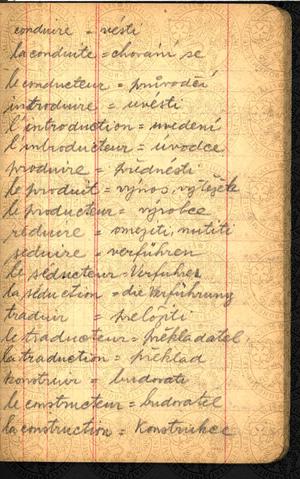 conduire = vésti
la conduite = chování se
le conducteur = průvodčí
introduire = uvésti
l'introduction = uvedení
l'introducteur = úvodce
produire = přednésti
le produit = výnos, výtěžek
le producteur = výrobce
réduire = omejiti, nutiti
séduire = verführen
le séducteur = Verführer
la séduction = die Verführung
traduir = přeložiti
le traducteur = překladatel
la traduction = překlad
konstruir = budovati
le constructeur = budovatel
la construction = Konstrukce